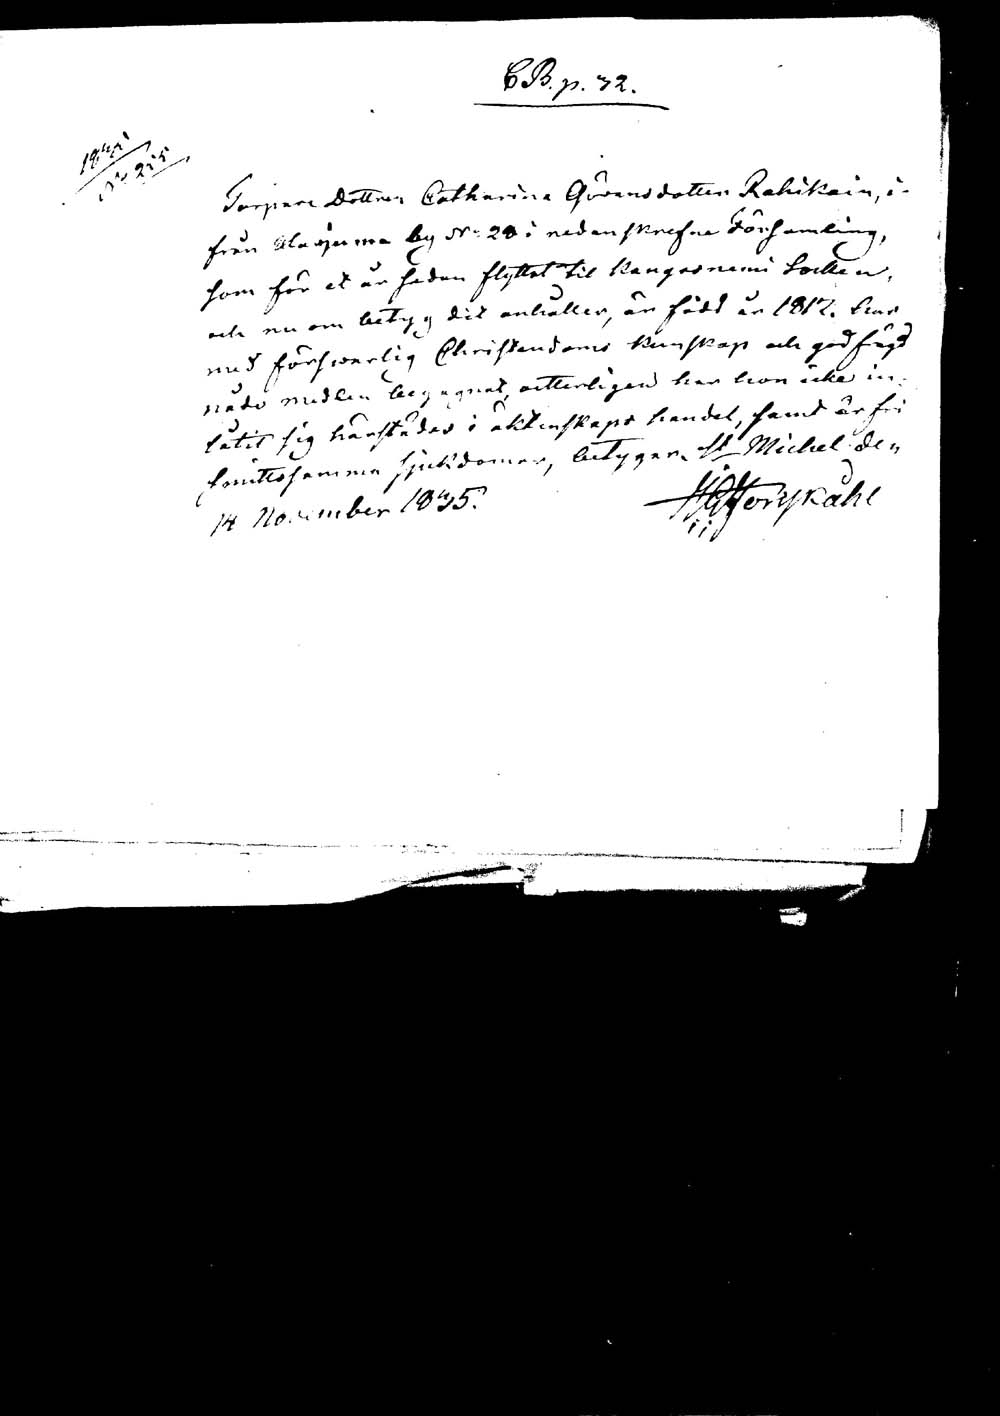 CB. p. 72.
1835
No 215
Torpare Dottren Catharina Göransdotter Rahikain, i-
från by No 28 i nedanskrefne Församling,
som för et år sedan flyttat til Kangasniemi Socken,
och nu om betyg dit anhåller, är född år 1812. har
med försvarlig Christendoms kunskap och god frägd
nåde medlen begagnat, ytterligare har hon icke in-
låtit sig härstädes i äktenskaps handel, samt är fri
smittosamma sjukdomar, betygar. St Michel den
14 November 1835.